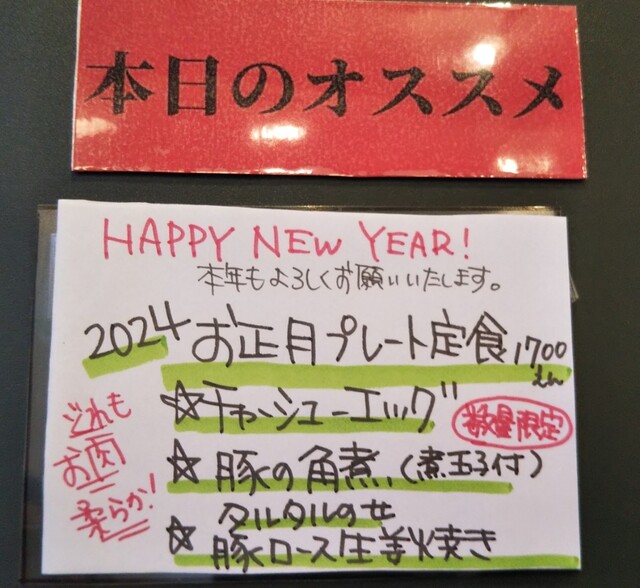 本日のオススメ
HAPPY NEW YEAR!
本年もよろしくお願いいたします。
2024 お正月プレート定食 1700えん
☆チャーシューエッグ
数量限定
☆豚の角煮(煮玉子付)
☆タルタルのせ
豚ロース生姜焼き
どれも
お肉
柔らか!